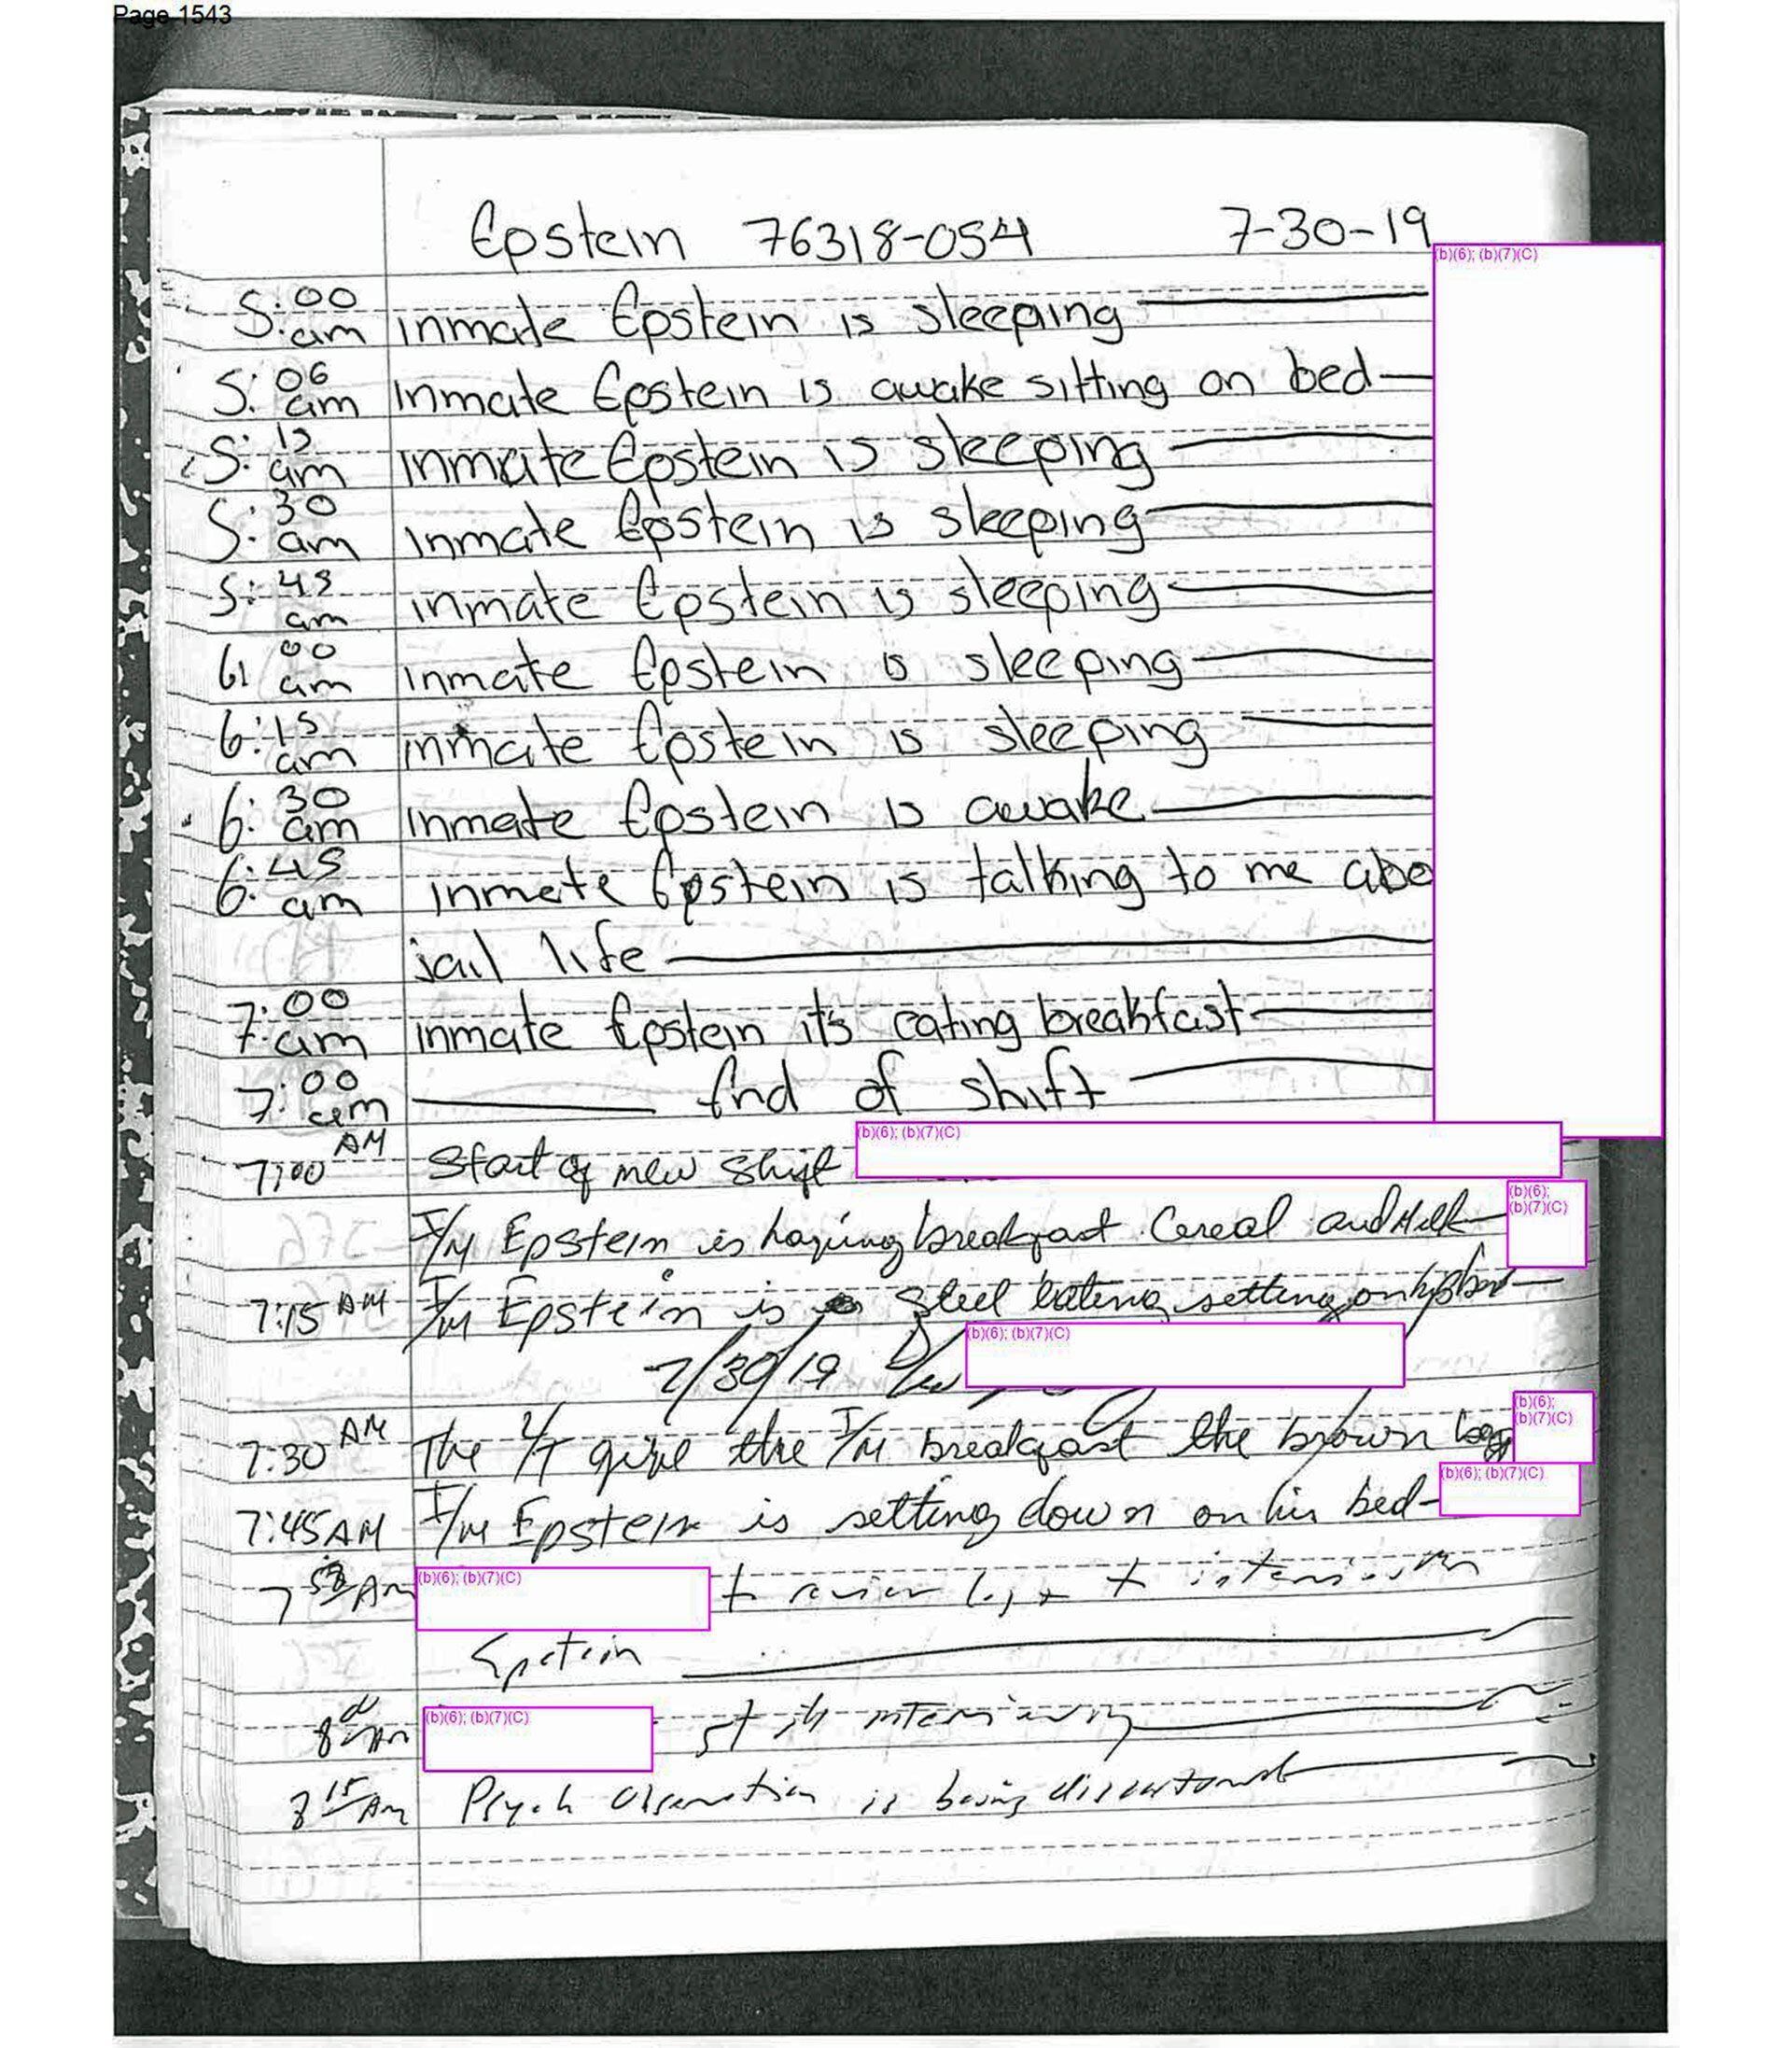 Page 1543
Epstein 76318-054 7-30-19
(b)(6); (b)(7)(C)
5:00 am inmate Epstein is sleeping
5:06 am inmate Epstein is awake sitting on bed
5:15 am inmate Epstein is sleeping
5:30 am inmate Epstein is sleeping
5:45 am inmate Epstein is sleeping
6:00 am inmate Epstein is sleeping
6:15 am inmate Epstein is sleeping
6:30 am inmate Epstein is awake
6:45 am inmate Epstein is talking to me abo
jail life
7:00 am inmate Epstein it's eating breakfast
7:00 am End of shift
7:00 AM Start of new shift (b)(6); (b)(7)(C)
I/M Epstein is having breakfast. Cereal and Milk (b)(6); (b)(7)(C)
7:15 AM I/M Epstein is still eating setting on
7/30/19 (b)(6); (b)(7)(C)
7:30 AM The give the I/M breakfast the brown bag (b)(6); (b)(7)(C)
7:45 AM I/M Epstein is setting down on his bed (b)(6); (b)(7)(C)
AM (b)(6); (b)(7)(C) to review log
Epstein
8 AM (b)(6); (b)(7)(C) still interviewing
8 15 AM Psych Observation is being